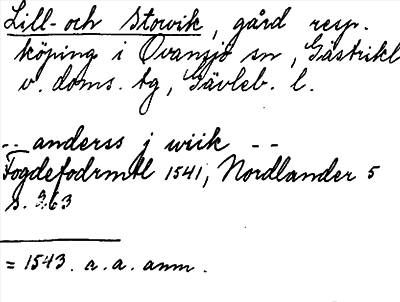 Lill- och Storvik, gård resp.
köping i Ovansjö sn, Gästrikl
v. doms. tg, Gävleb. l.
-- anderss j wiik --
Fogdefodrmtl 1541, Nordlander 5
s. 263
= 1543. a. a. anm.